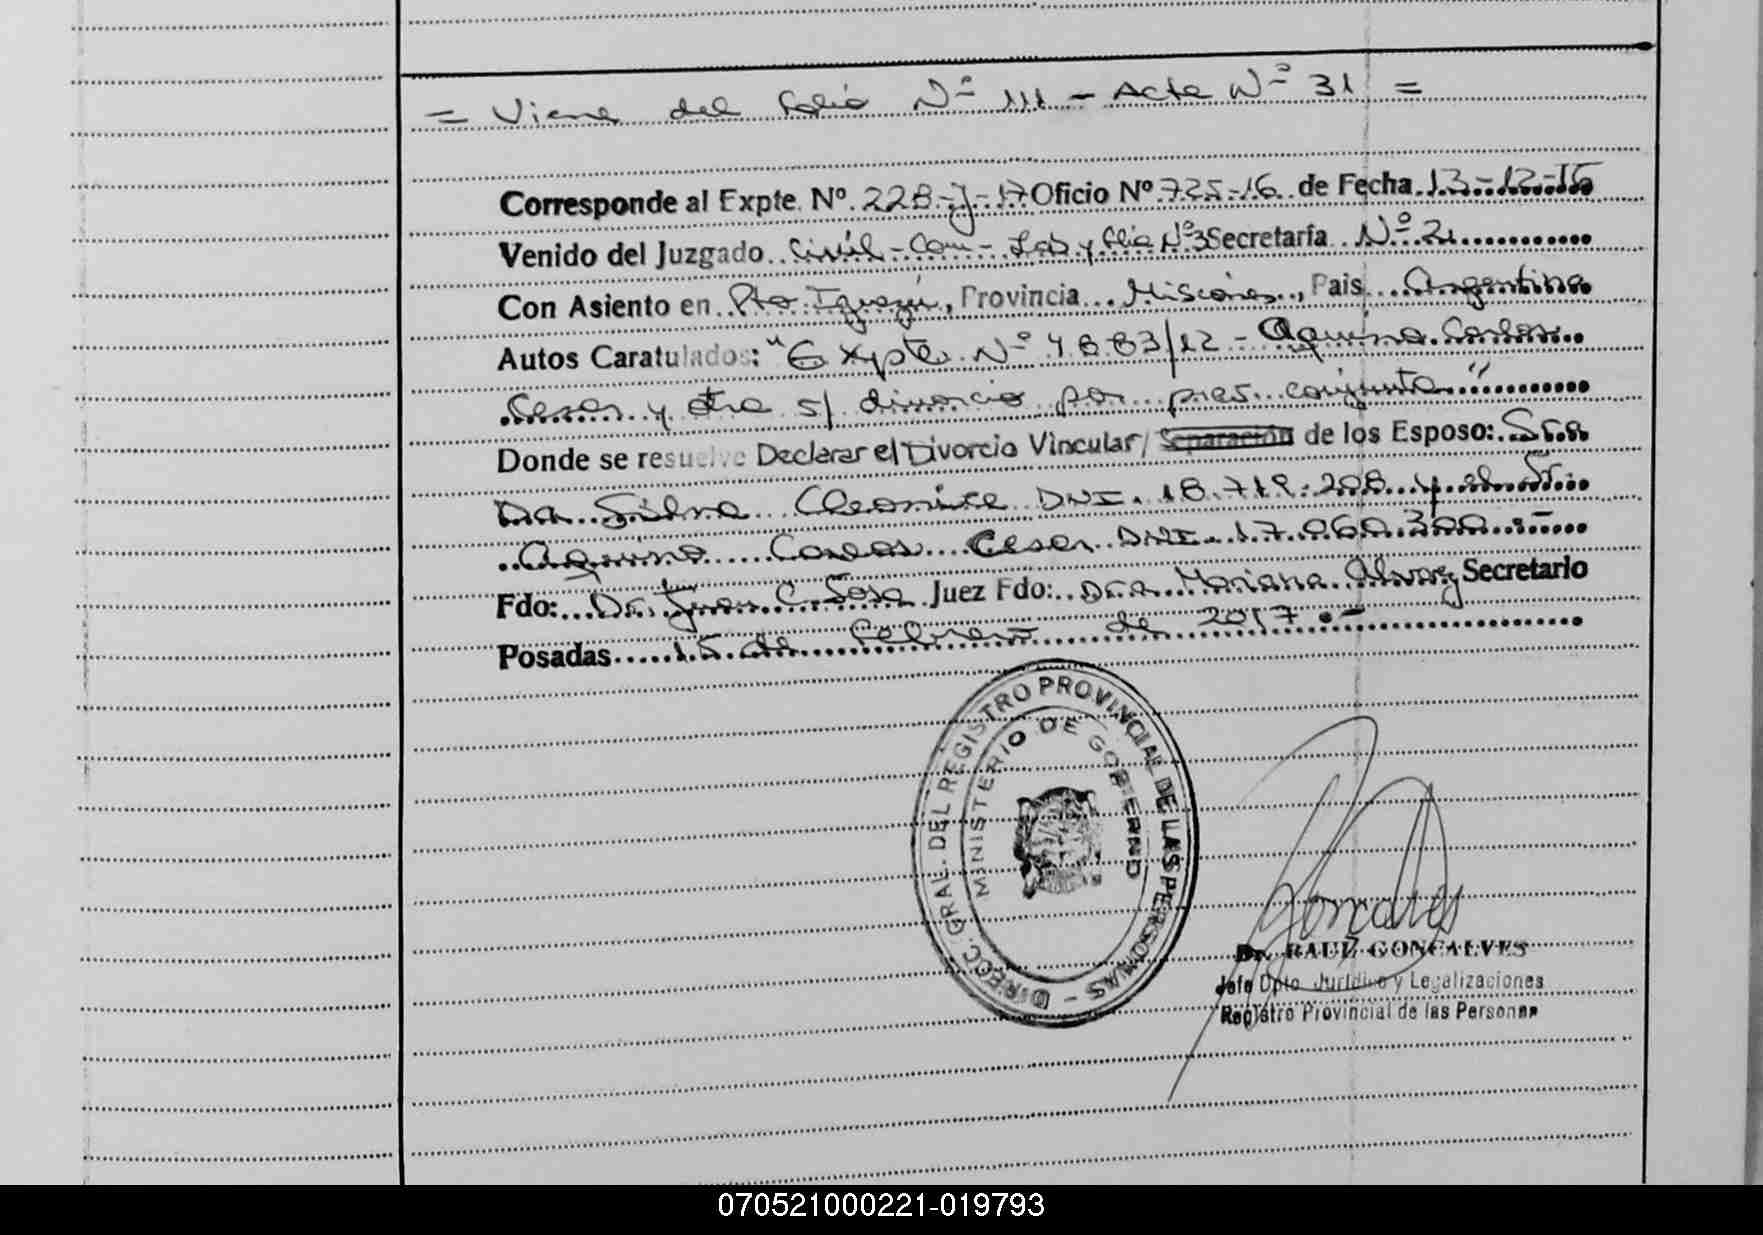 = Viene del folio Nº 111 - Acta Nº 31 =
Corresponde al Expte. Nº 228-J-17 Oficio Nº 725-16 de Fecha 13-12-16
Venido del Juzgado Civil - Com - Lab y flia Nº3 Secretaría Nº 2
Con Asiento en Pto. Iguazú, Provincia Misiones, Pais Argentina
Autos Caratulados: "Expte Nº 4883/12 - Aquino Carlos
Cesar y otra s/ divorcio por pres. conjunta"
Donde se resuelve Declarar el Divorcio Vincular/ Separación de los Esposo: Sra
Da Silva Cleonice DNI. 18.719.208 y el Sr.
Aquino Carlos Cesar DNI. 17.060.300.-
Fdo: Dr. Juan C. Sosa Juez Fdo: Dra. Mariana Alvarez Secretario
Posadas 15 de Febrero de 2017.-
DIRECC. GRAL. DEL REGISTRO PROVINCIAL DE LAS PERSONAS -
MINISTERIO DE GOBIERNO
Dr. RAUL GONCALVES
Jefe Dpto Jurídico y Legalizaciones
Registro Provincial de las Personas
070521000221-019793